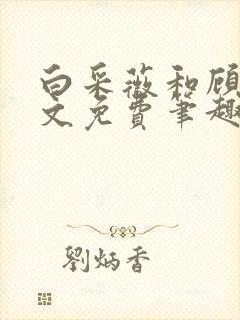 白采薇和顾
文免费笔趣
刘炳香